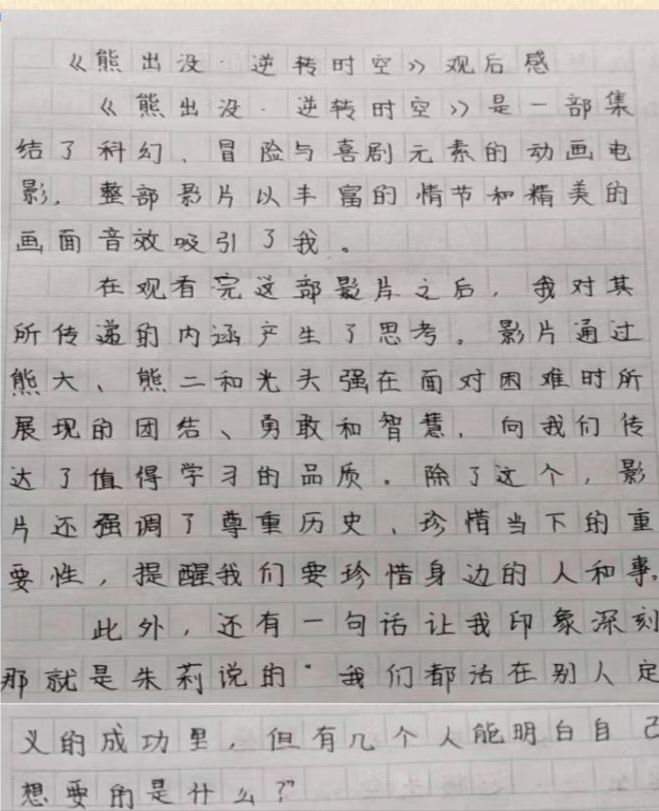 《熊出没·逆转时空》观后感
《熊出没·逆转时空》是一部集
结了科幻、冒险与喜剧元素的动画电
影,整部影片以丰富的情节和精美的
画面音效吸引了我。
在观看完这部影片之后,我对其
所传递的内涵产生了思考。影片通过
熊大、熊二和光头强在面对困难时所
展现的团结、勇敢和智慧,向我们传
达了值得学习的品质。除了这个,影
片还强调了尊重历史、珍惜当下的重
要性,提醒我们要珍惜身边的人和事。
此外,还有一句话让我印象深刻
那就是朱莉说的“我们都活在别人定
义的成功里,但有几个人能明白自己
想要的是什么?”